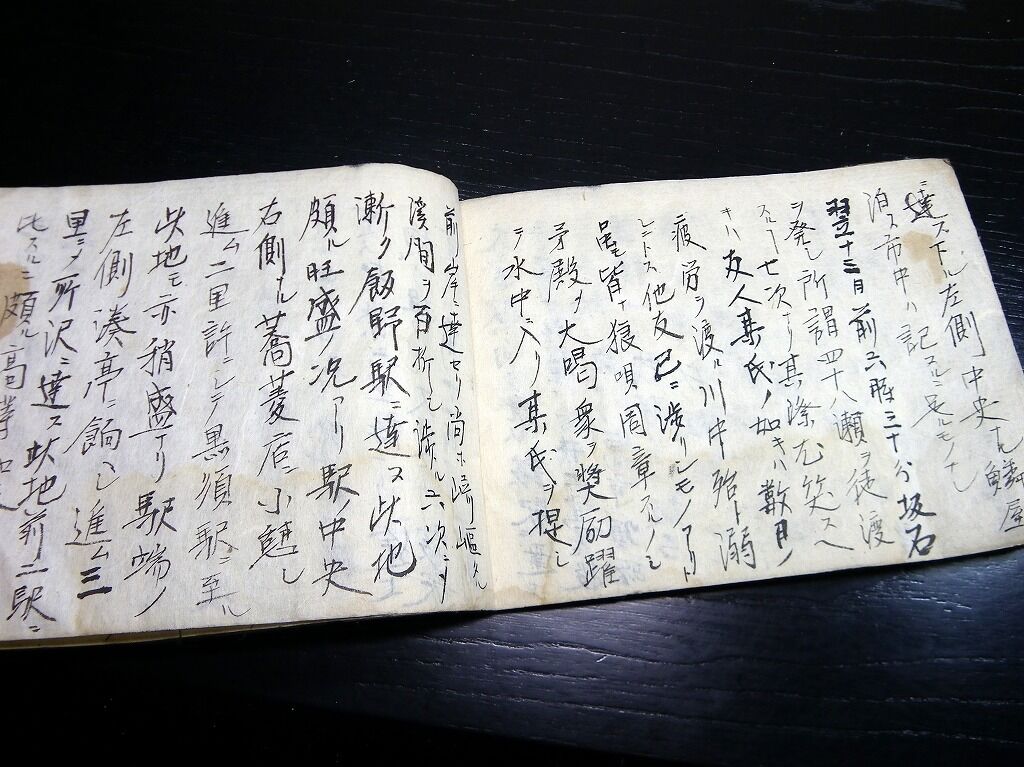 ニ達ス下ル左側中央ナル鱗屋
泊ス市中ハ記スルニ足ルモノナシ
翌十三日前六時三十分坂石
ヲ発シ所謂四十八瀬ヲ徒渡
スルー七次ナリ其際尤笑スヘ
キハ友人某氏ノ如キハ数日ノ
疲労ヲ渡ル川中殆ー溺
レントス他友已ニ渉リシモノアリト
皆ナ狼唄周章スルノミ
予殿ヲ大喝衆ヲ奨励躍
テ水中ニ入リ某氏ヲ提シ
前岸ニ達セリ尚ホ崎嶇タル
渓間ヲ百折シ渉ル六次ニシテ
漸ク飯野駅ニ達ス此地
頗ル旺盛ノ況アリ駅ノ中央
右側ナル蕎菱店ニ小憩シ
進ム二里許ニシテ黒須駅ニ至ル
此地モ亦稍盛ナリ駅端ノ
左側湊亭ニ餉シ進ム三
里ニメ所沢ニ達ス此地前二駅ニ
比スルニ頗ル高等